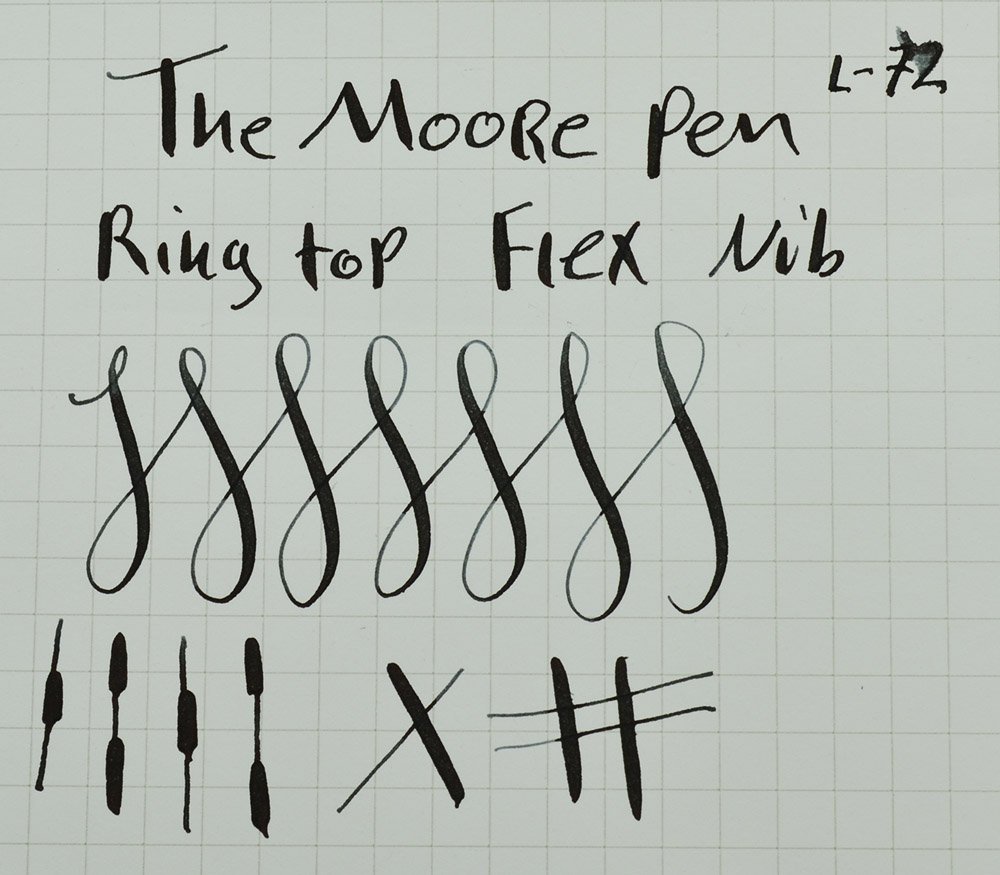 The MooRe Pen L-72
Ring top Flex Nib